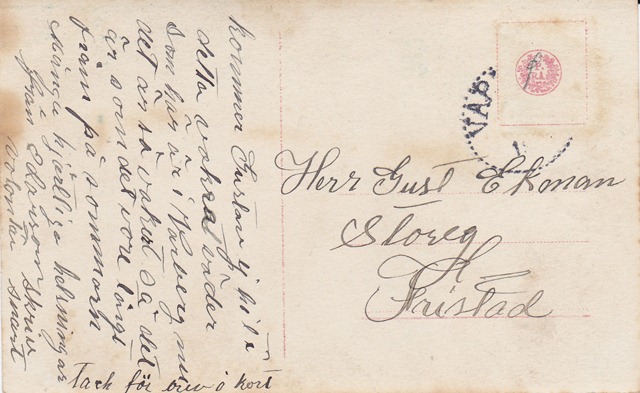 Kommer Gustav ej hit i
detta vakra väder
som här är i Varberg nu
det är så vakert så det
är som det vore långt
fram på sommarn
Många hjärtliga helsningar
från Larsson skriv
snart
Tack för brev o kort
Herr Gust Ekman
Storeg
Fristad
VAR